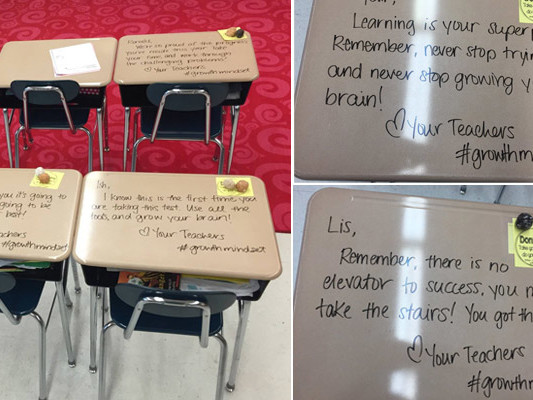 We're so proud of the progress
you've made this year. Take
your time and work through
the challenging problems!
♡ Your Teachers
#growthmindset
you it's going to
going to be
best!
Teachers
#growthmindset
Ish,
I know this is the first time you
are taking this test. Use all the
tools, and grow your brain!
♡ Your Teachers
#growthmindset
Learning is your super
Remember, never stop tryin
and never stop growing y
brain!
♡ Your Teachers
#growthm
Lis,
Remember, there is no
elevator to success, you m
take the stairs! You got th
♡ Your Teachers
#growthm
Don